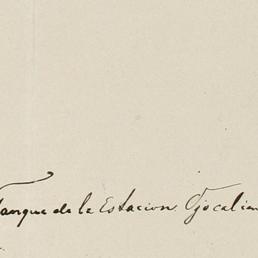 Tanque de la Estacion Ojocalien